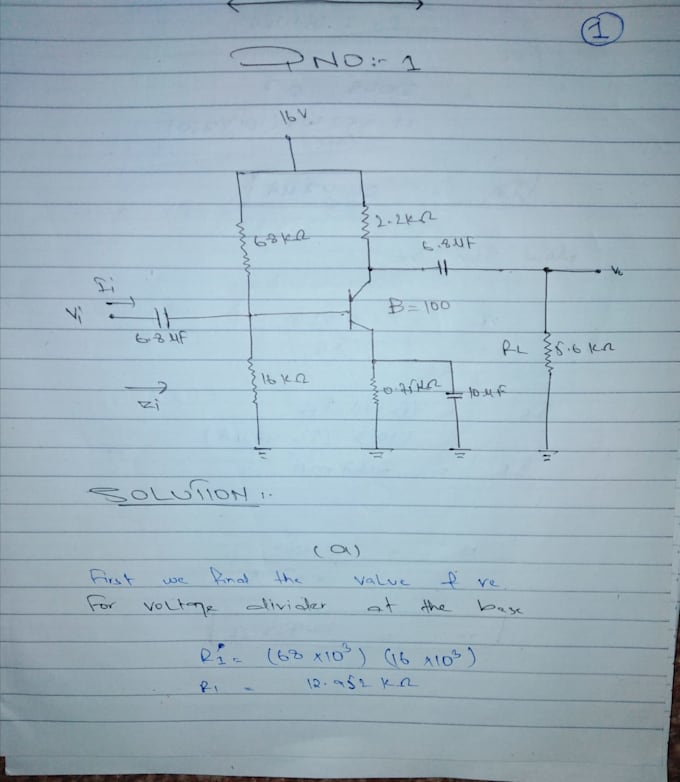 1
QNO:- 1
16V
2.2KΩ
68KΩ
6.8μF
Ii
Vi
B=100
6.8μF
RL 5.6KΩ
16KΩ
0.75KΩ
10μF
Zi
SOLUTION:-
(a)
First we find the value of re
For voltage divider at the base
(68 x10³) (16 x10³)
R1 = 12.952 KΩ